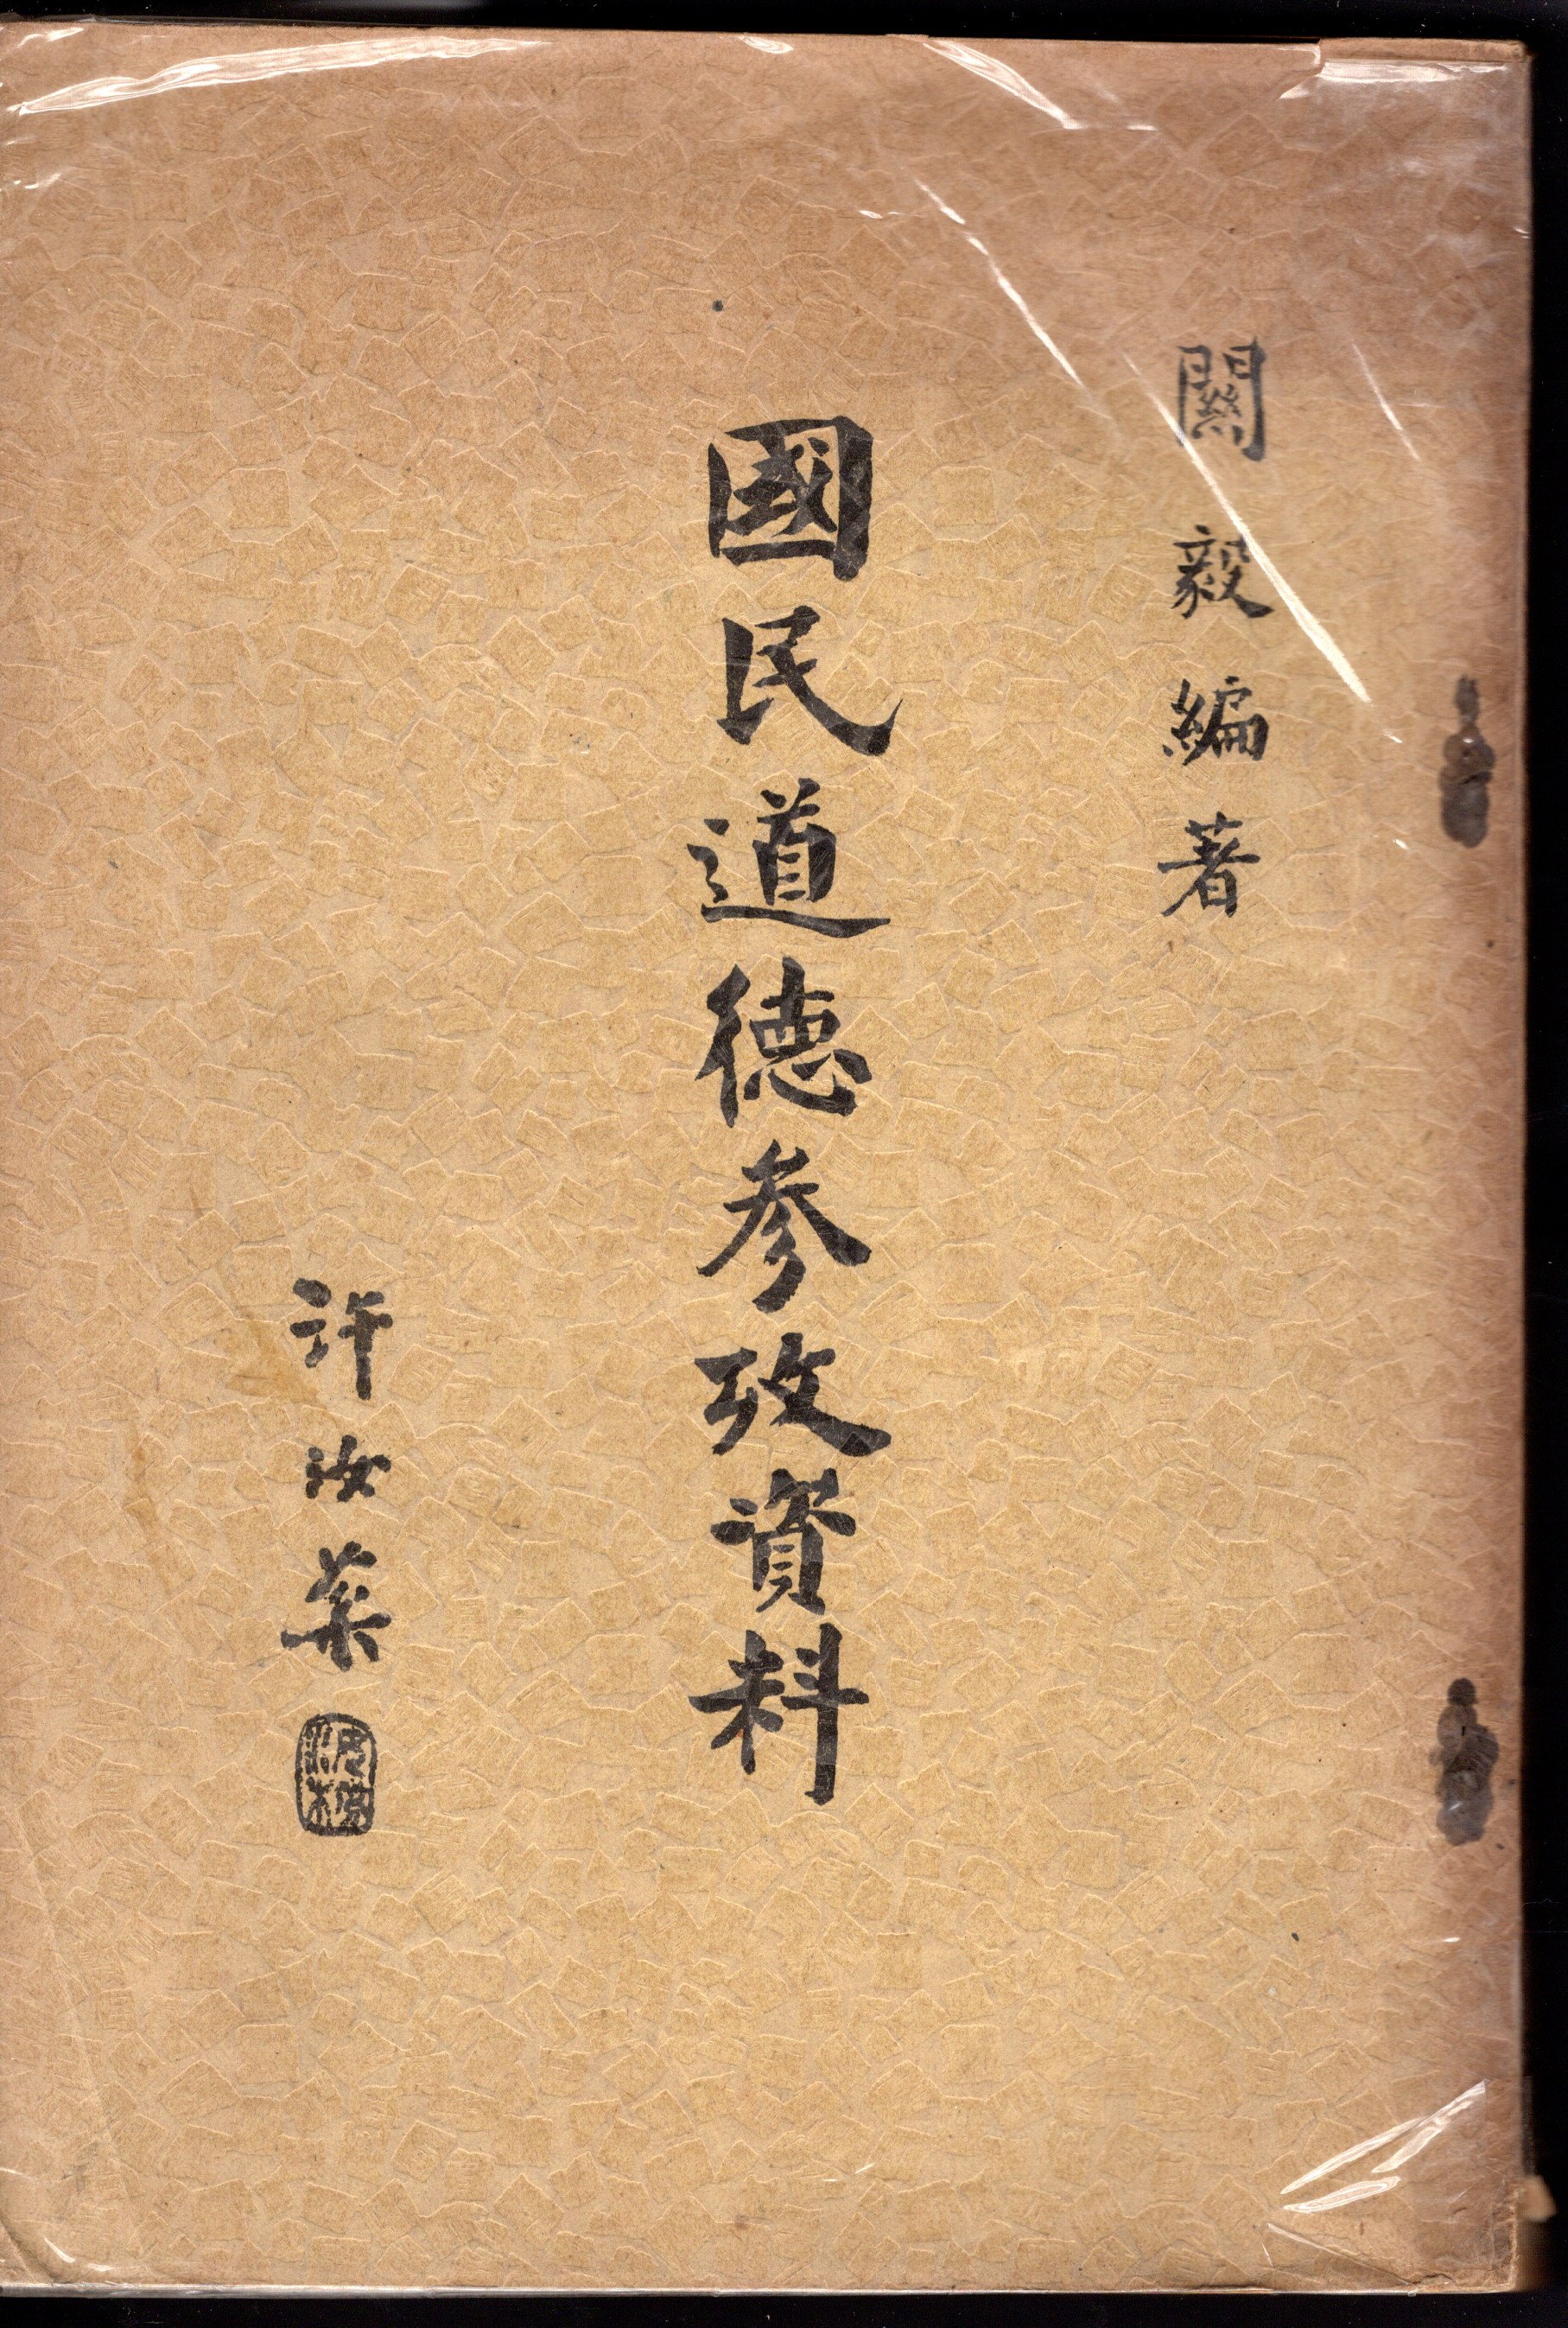 關毅編著
國民道德參攷資料
許汝棻